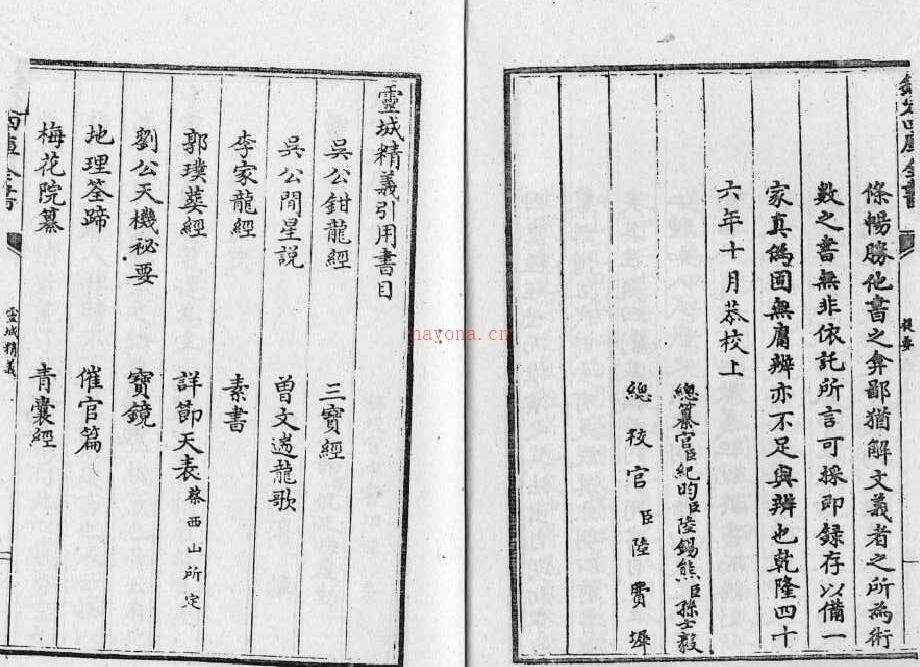 欽定四庫全書
提要
條暢勝他書之弇鄙猶解文義者之所為術
數之書無非依託所言可採即録存以備一
家真偽固無庸辨亦不足與辨也乾隆四十
六年十月恭校上
總纂官臣紀昀臣陸錫熊臣孫士毅
總校官臣陸費墀
靈城精義引用書目
吳公鉗龍經 三寶經
吳公閒星說 曾文遄龍歌
李家龍經 素書
郭璞葬經 詳節天表蔡西山所定
劉公天機祕要 寶鏡
地理筌蹄 催官篇
梅花院纂 青囊經
四庫全書
靈城精義
nayona.cn